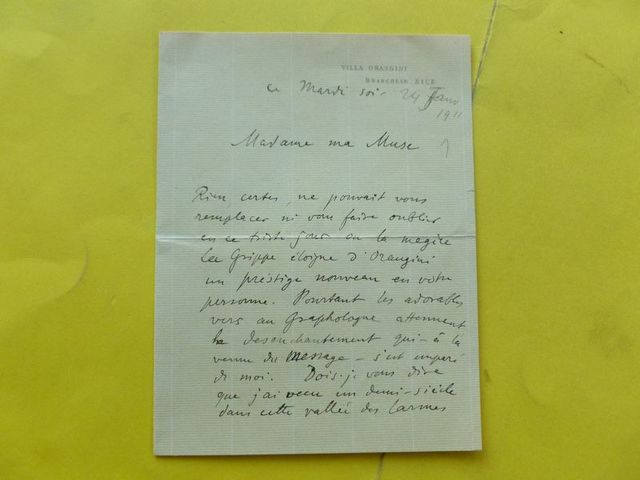 VILLA ORANGINI
NICE
ce Mardi soir 24 Janv
1911
Madame ma Muse
Rien certes, ne pouvait vous
remplacer ni vous faire oublier
en ce triste jour ou la
la Grippe éloigne d'Orangini
un préstige nouveau en votre
personne. Pourtant les adorables
vers au Graphologue attennent
ha desenchantement qui - à la
venue du Message - s'est emparé
de moi. Dois-je vous dire
que j'ai vecu un demi-siècle
dans cette vallée des larmes